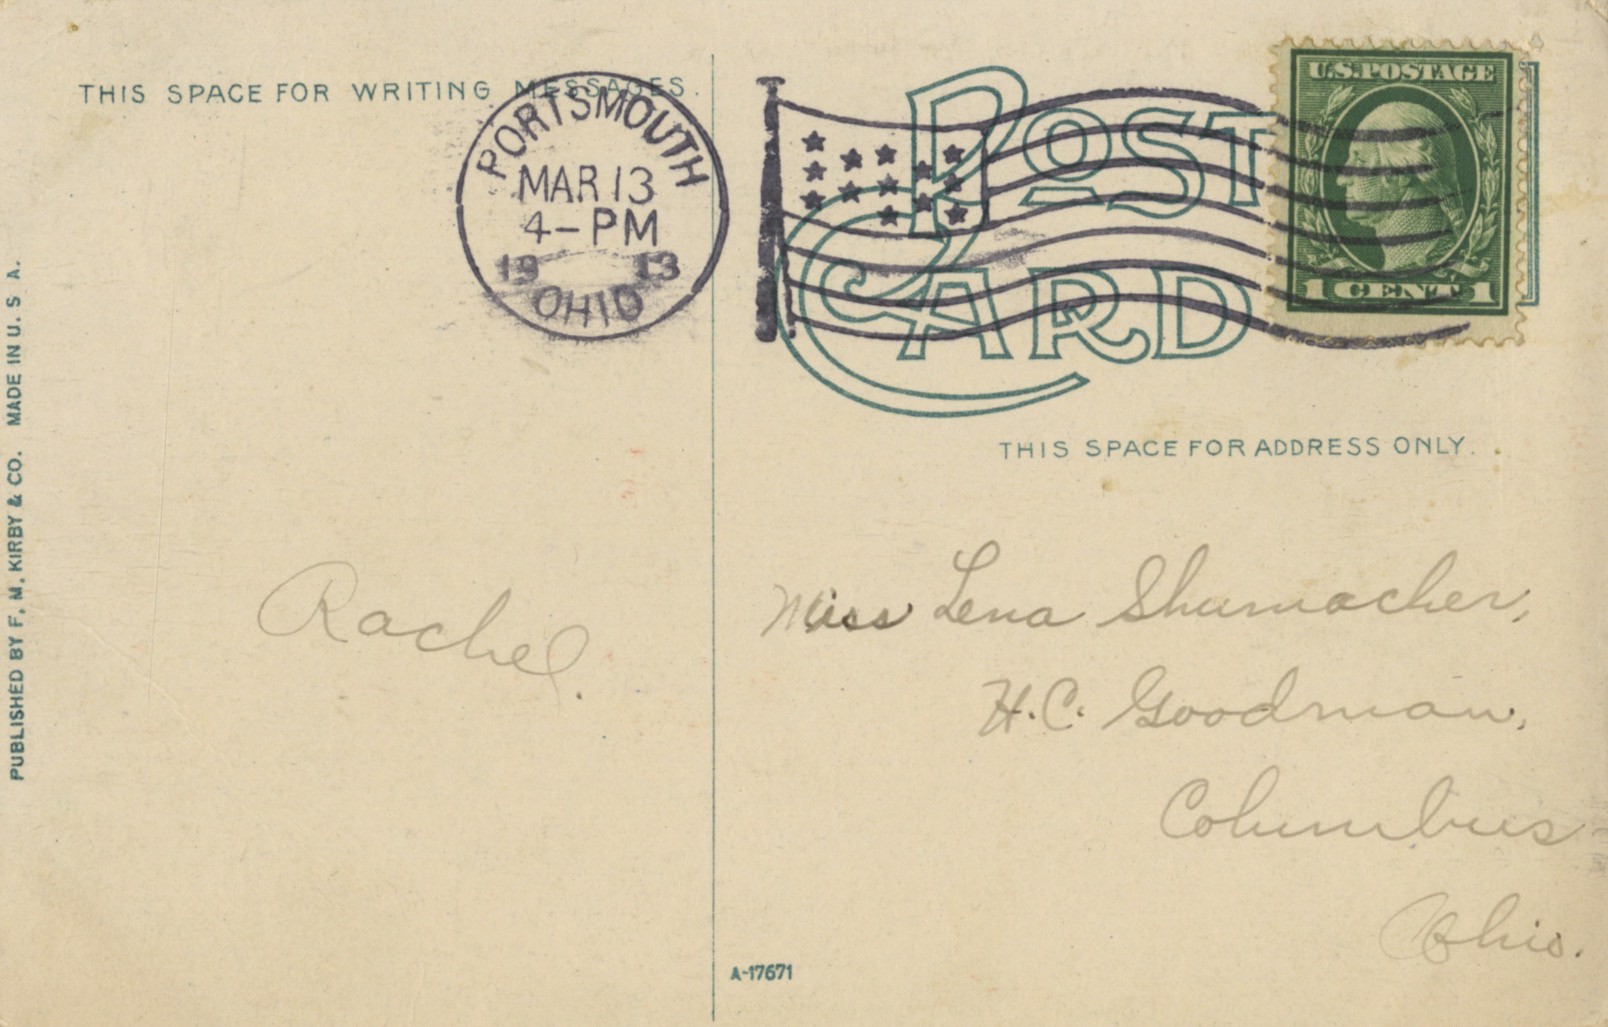 THIS SPACE FOR WRITING MESSAGES.
PORTSMOUTH
MAR 13
4-PM
1913
OHIO
POST CARD
U.S. POSTAGE
1 CENT 1
THIS SPACE FOR ADDRESS ONLY.
PUBLISHED BY F. M. KIRBY & CO. MADE IN U. S A.
Rachel.
Miss Lena Shumacher,
H.C. Goodman,
Columbus
Ohio.
A-17671